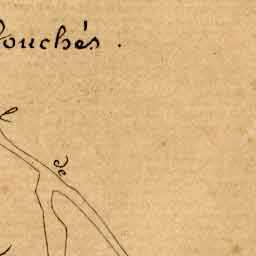 ouchés.
de